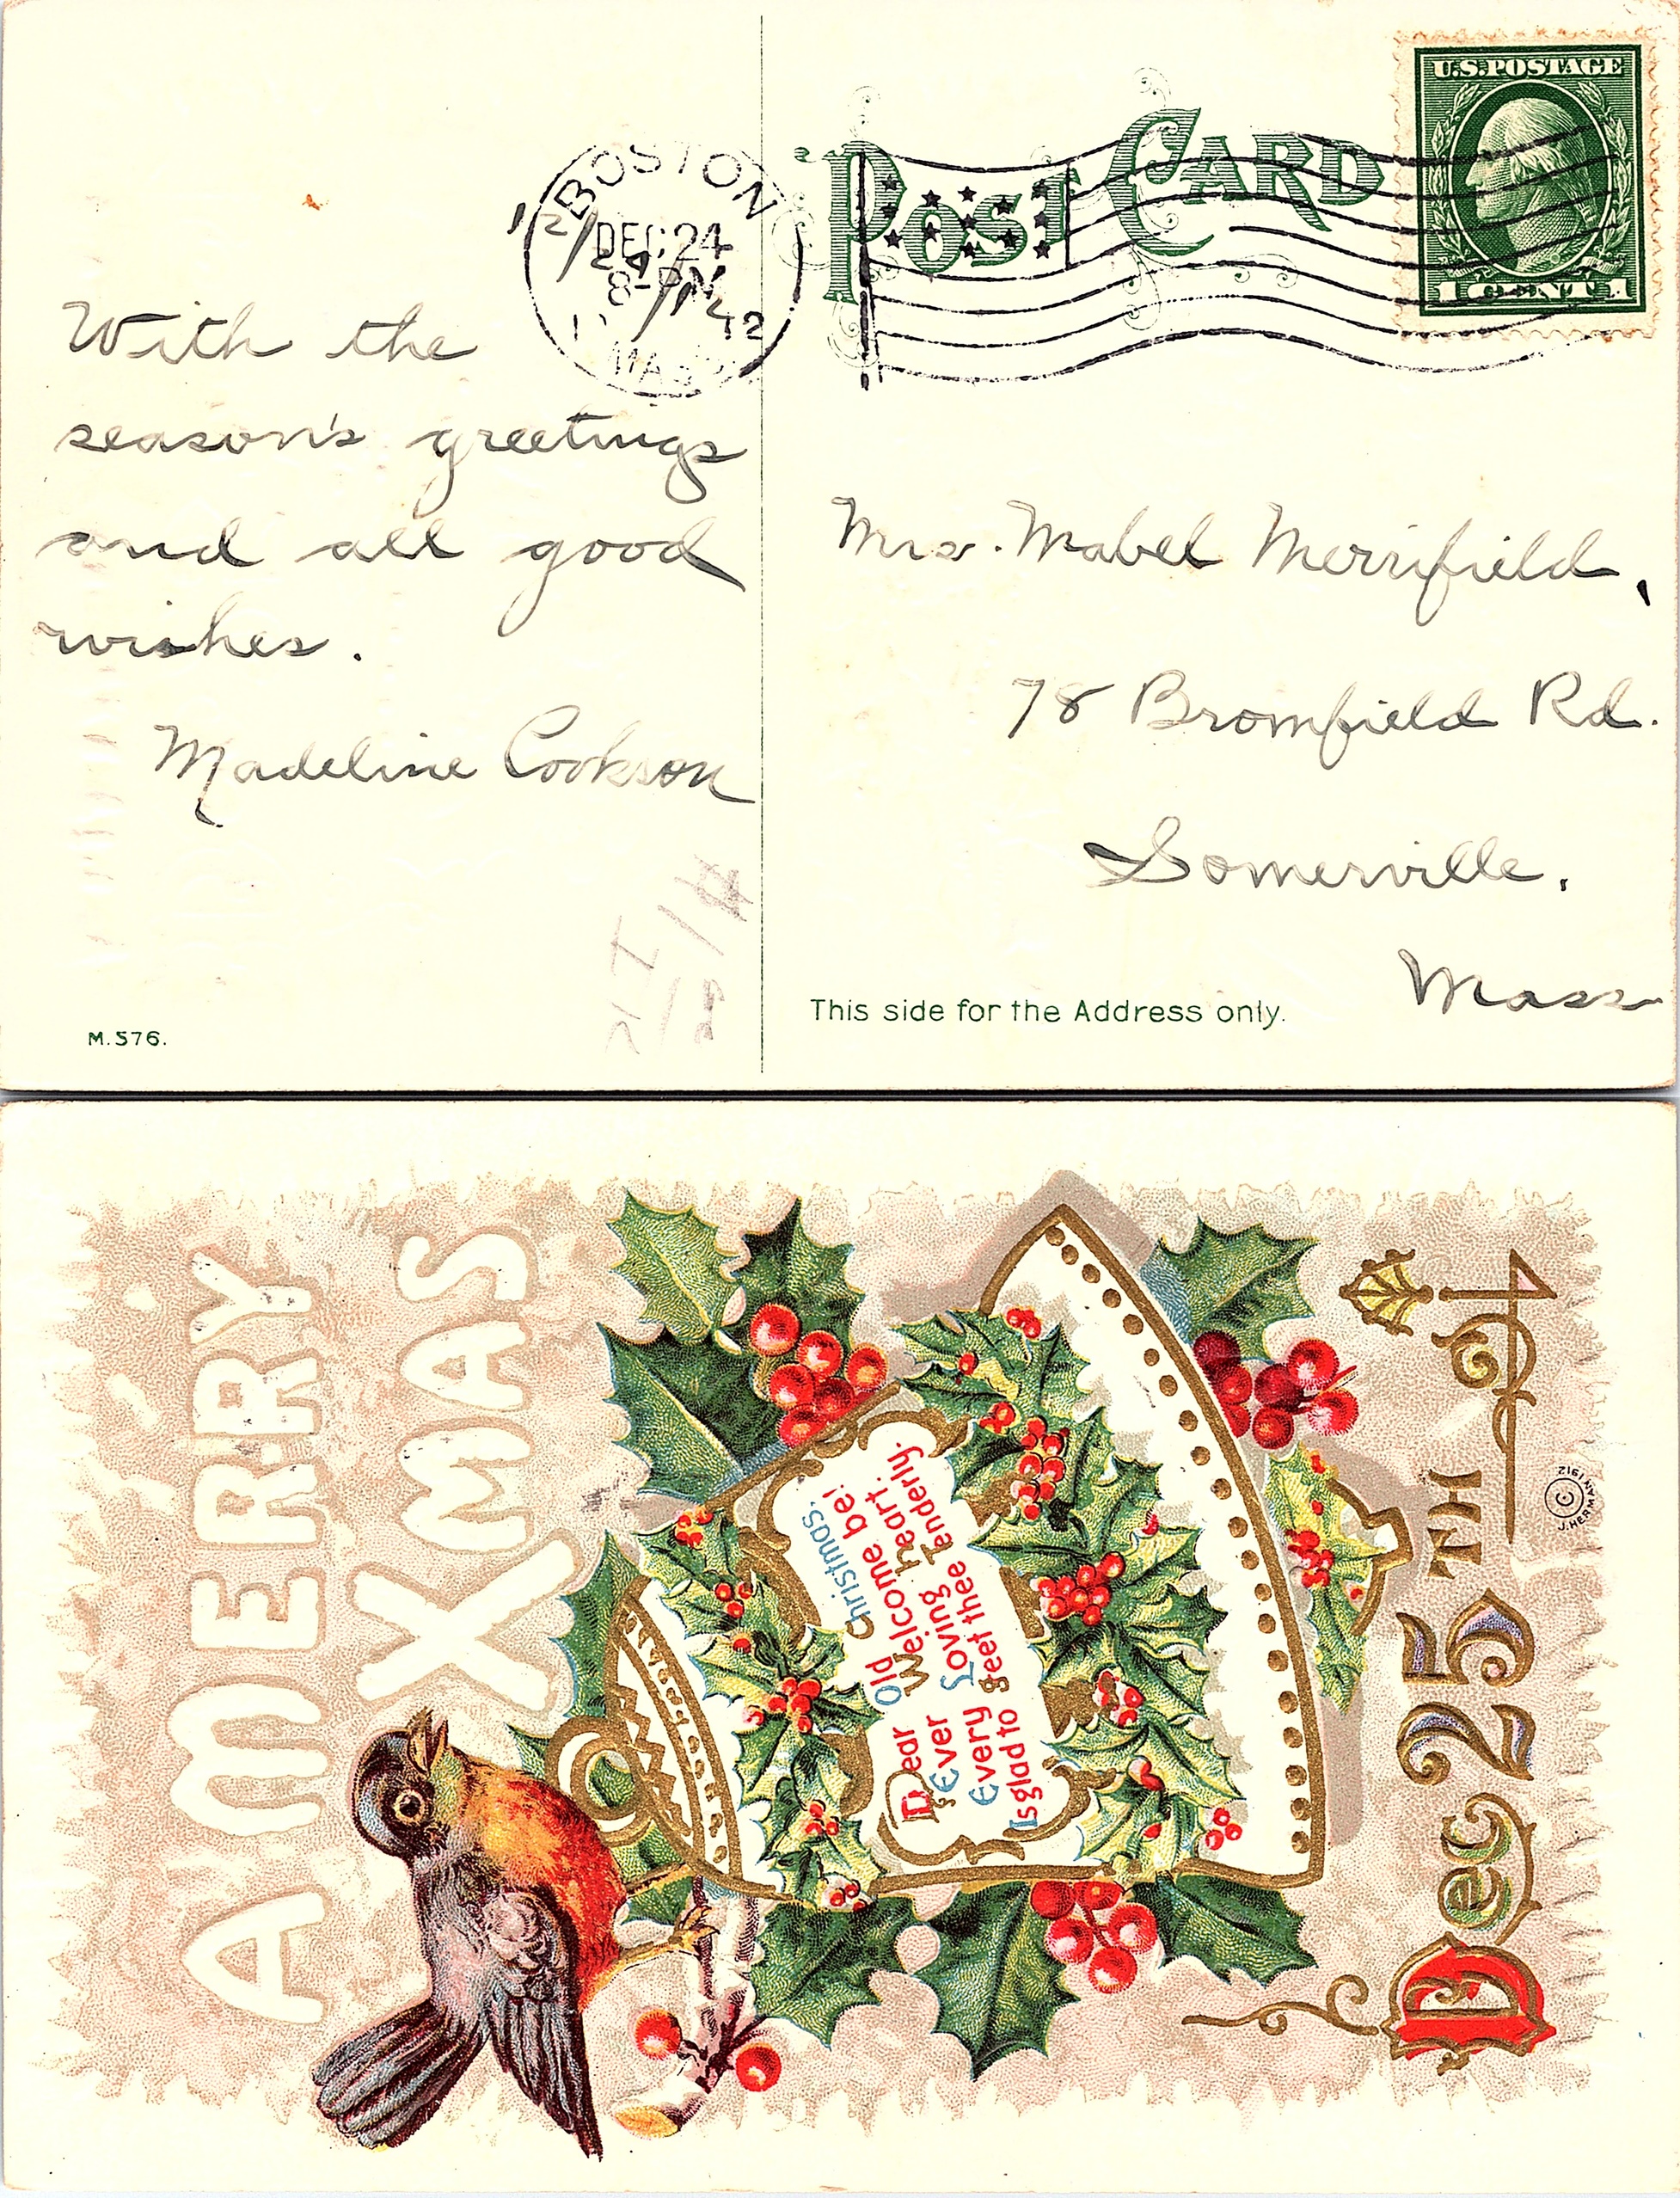 BOSTON
DEC 24
8-PM
MASS.
12/24/12
POST CARD
U.S. POSTAGE
1 CENT 1
With the
season's greetings
and all good
wishes.
Madeline Cookson
Mrs. Mabel Merrifield,
78 Bromfield Rd.
Somerville,
Mass
This side for the Address only.
M. 576.
A MERRY
XMAS
Dear Old Christmas,
Ever Welcome be!
Every Loving heart
Is glad to geet thee Tenderly.
Dec 25TH
© J. HERMAN 1912